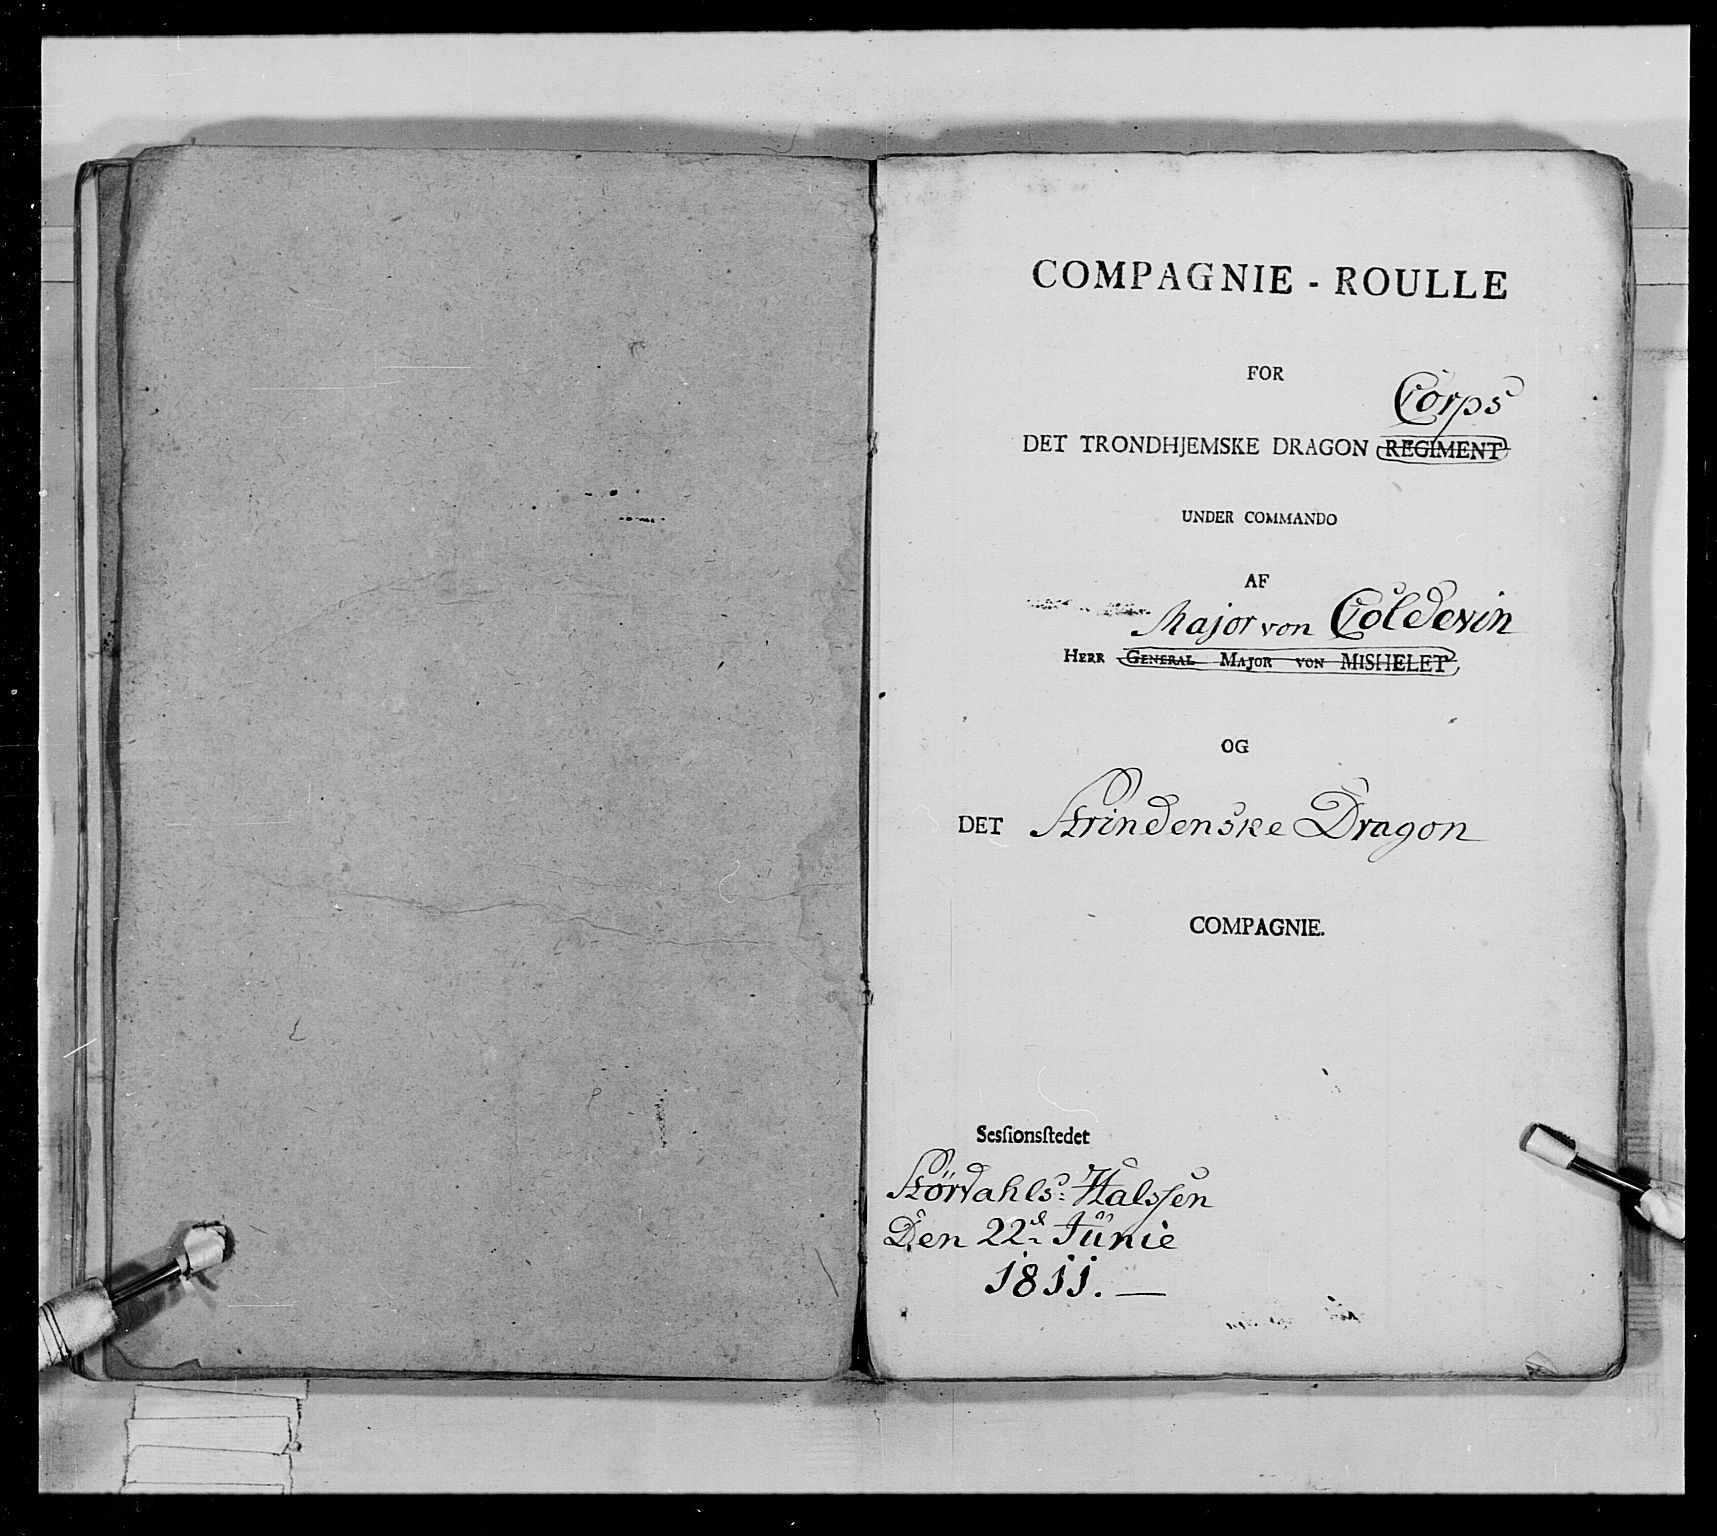 COMPAGNIE - ROULLE
FOR
Corps
DET TRONDHJEMSKE DRAGON REGIMENT
UNDER COMMANDO
AF
Major von Coldevin
HERR GENERAL MAJOR VON MISHELET
OG
DET Strindenske Dragon
COMPAGNIE.
Sesſionsſtedet
Stördahls: Halsſen
Den 22d Junie
1811. —